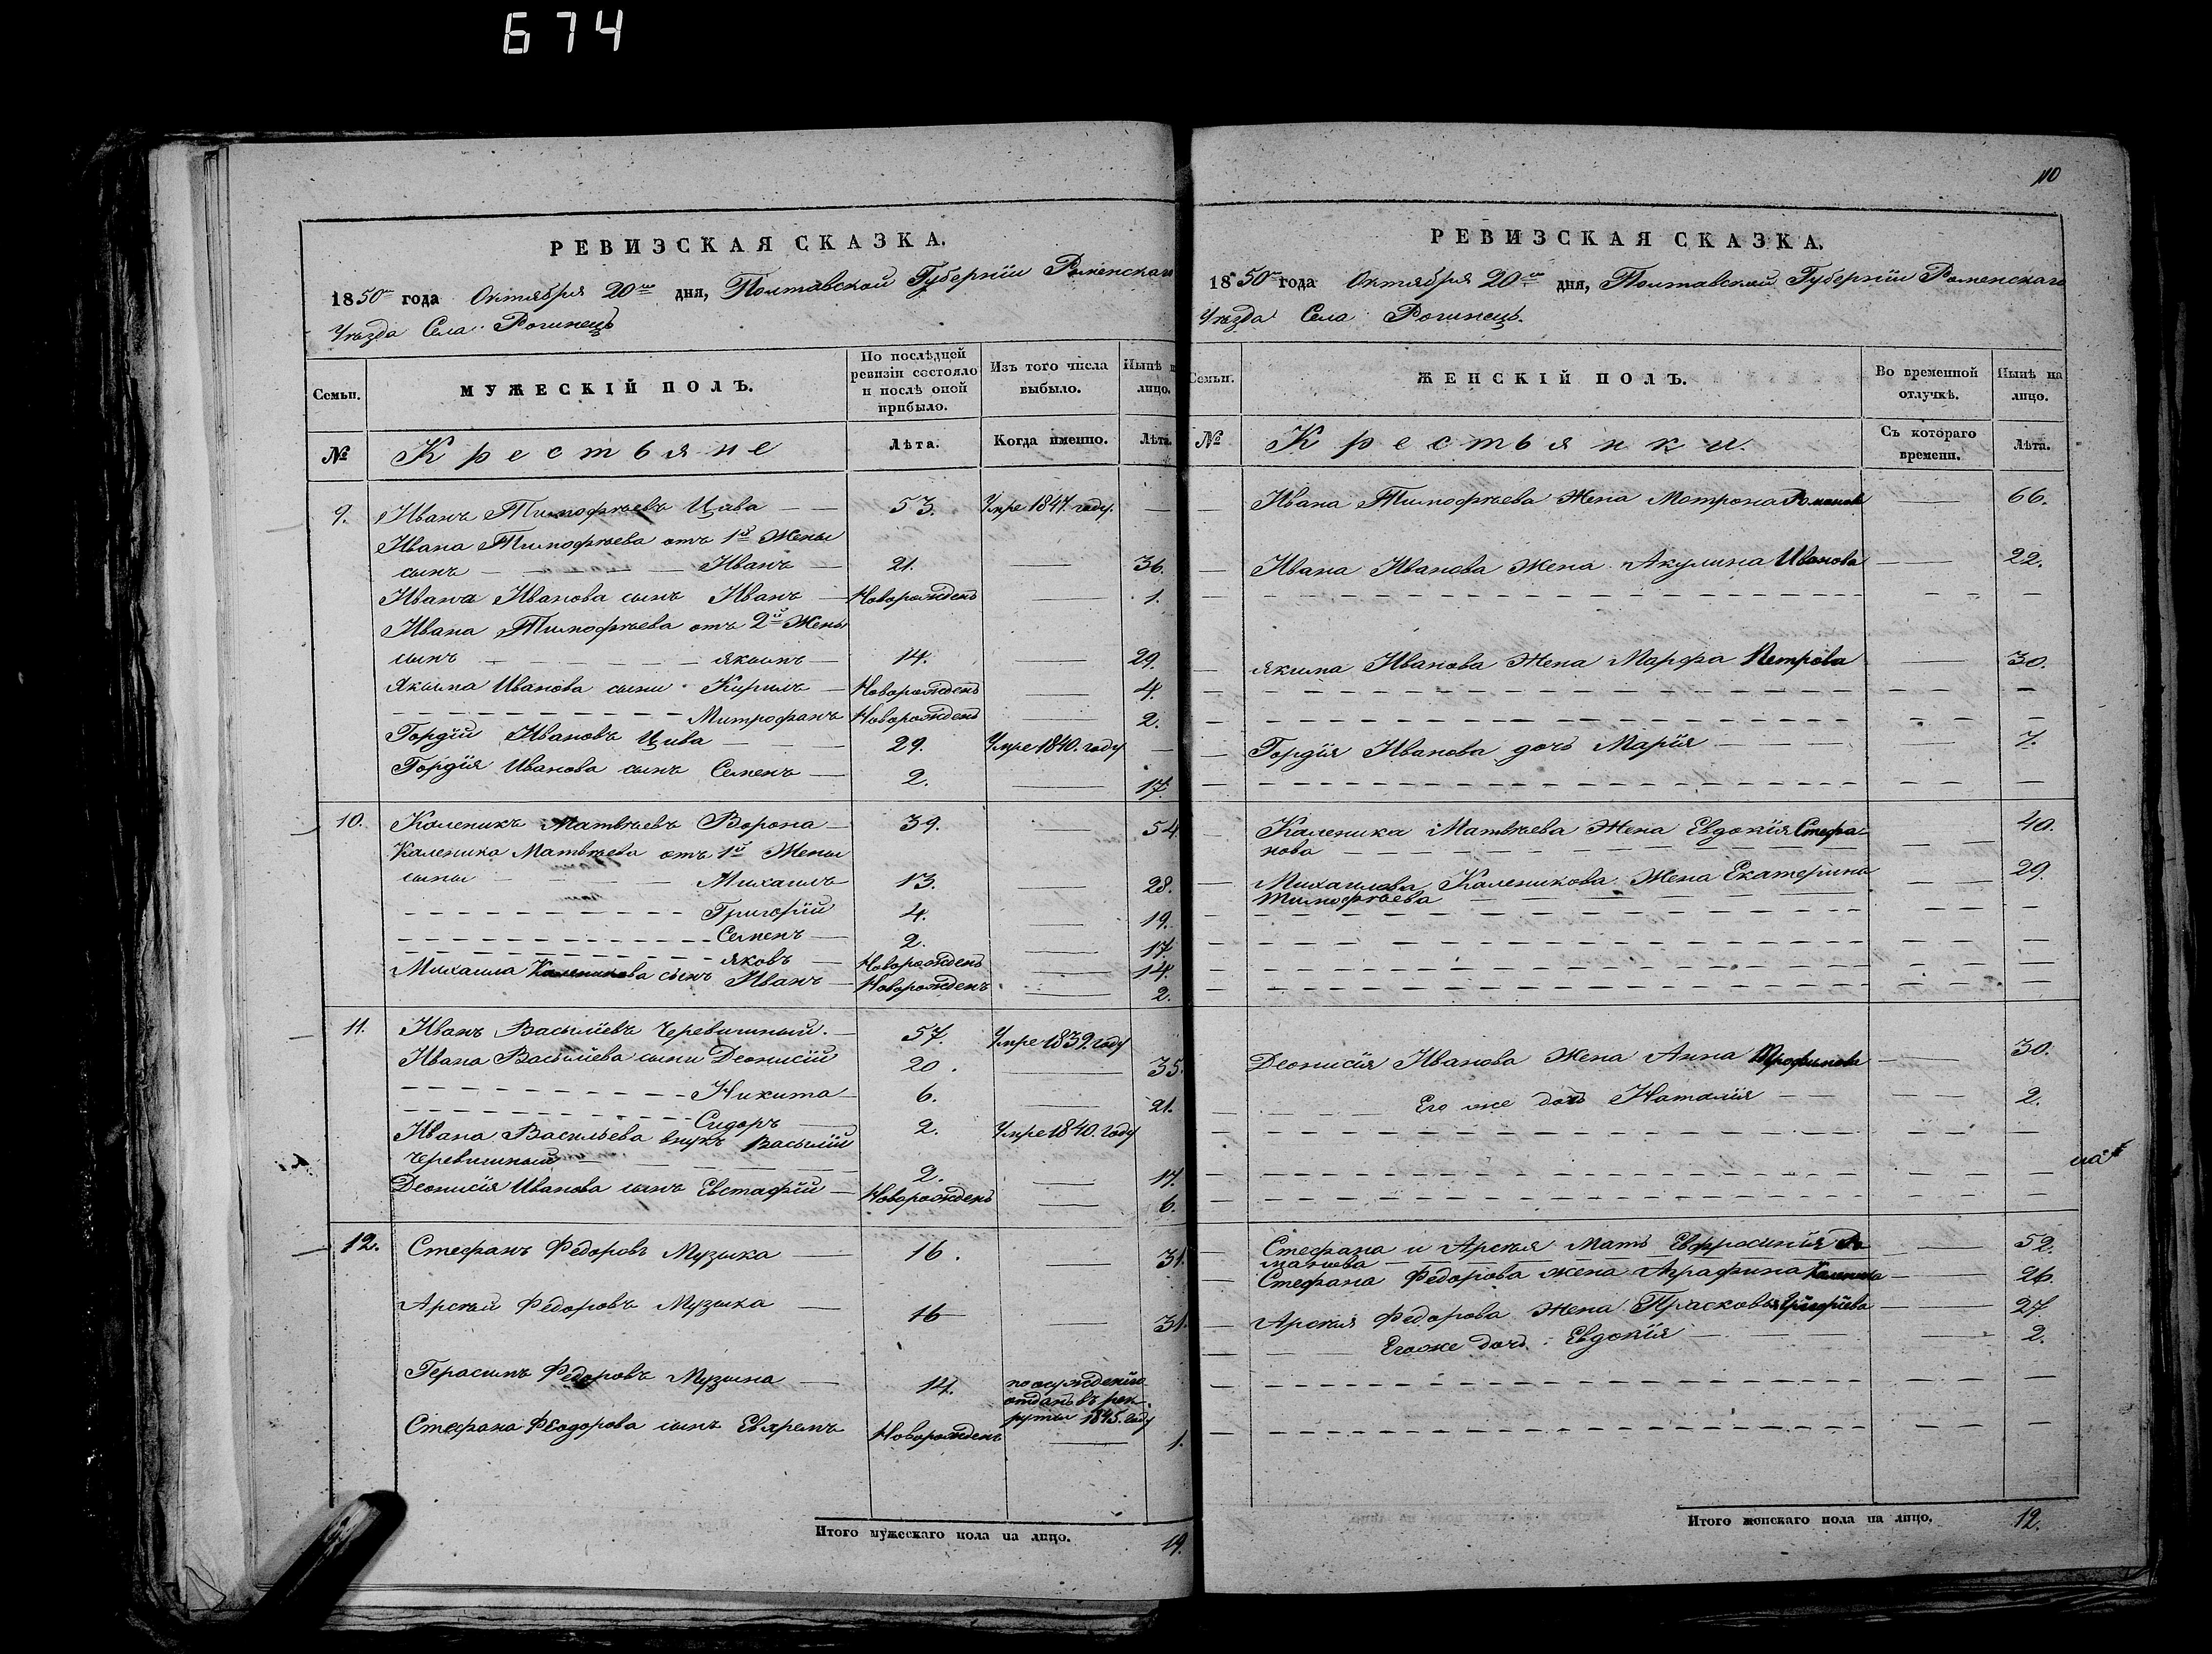 674
РЕВИЗСКАЯ СКАЗКА.
1850 года Октября 20го дня, Полтавской Губерніи Роменскаго
Уѣзда Села Рогинецъ
Семьи.
МУЖЕСКІЙ ПОЛЪ.
По послѣдней ревизіи состояло и послѣ оной прибыло.
Изъ того числа выбыло.
Нынѣ на лицо.
№
Крестьяне
Лѣта.
Когда именно.
Лѣта.
9. Иванъ Тимофѣевъ Цива — 53. Умре 1847. году. —
Ивана Тимофѣева отъ 1й Жены
сынъ — Иванъ — 21. — 36.
Ивана Иванова сынъ Иванъ — Новорожденъ — 1.
Ивана Тимофѣева отъ 2й Жены
сынъ — Якимъ — 14. — 29.
Якима Иванова сыны Кирилъ — Новорожденъ — 4
Митрофанъ Новорожденъ — 2.
Гордій Ивановъ Цива — 29. Умре 1840. году —
Гордія Иванова сынъ Семенъ — 2. — 17.
10. Каленикъ Матвѣевъ Ворона — 39. — 54
Каленика Матвѣева отъ 1й Жены
сыны — Михаилъ 13. — 28.
Григорій 4. — 19.
Семенъ — 2. — 17.
Яковъ — Новорожденъ — 14.
Михаила Каленикова сынъ Иванъ — Новорожденъ — 2.
11. Иванъ Василіевъ Черевишный. — 57. Умре 1839. году
Ивана Василіева сыны Деонисій 20. — 35.
Никита — 6. — 21.
Сидоръ — 2. Умре 1840. году
Ивана Васильева внукъ Василій
Черевишный — 2. — 17.
Деонисія Иванова сынъ Евстафій — Новорожденъ — 6.
12. Стефанъ Федоровъ Музыка — 16. — 31.
Арсѣй Федоровъ Музыка — 16 — 31.
Герасимъ Федоровъ Музыка — 14. по осужденію
отданъ въ рек-
руты 1845. году
Стефана Феодорова сынъ Евхремъ Новорожденъ — 1.
Итого мужескаго пола на лицо. 19.
110
РЕВИЗСКАЯ СКАЗКА.
1850 года Октября 20го дня, Полтавской Губерніи Роменскаго
Уѣзда Села Рогинецъ.
Семьи.
ЖЕНСКІЙ ПОЛЪ.
Во временной отлучкѣ.
Нынѣ на лицо.
№
Крестьянки.
Съ котораго времени.
Лѣта.
Ивана Тимофѣева Жена Мотрона Романова — 66.
Ивана Иванова Жена Акулина Иванова — 22.
Якима Иванова Жена Марфа Петрова — 30.
Гордія Иванова дочь Марія — 7.
Каленика Матвѣева Жена Евдокія Стефа-
нова — 40.
Михаилова Каленикова Жена Екатерина
Тимофѣева — 29.
Деонисія Иванова Жена Анна Трофимова — 30.
Его же дочь Наталія — 2.
Стефана и Арсѣя Мать Евфросинія Ро
манова — 52.
Стефана Федорова жена Аграфина — 26.
Арсѣя Федорова Жена Прасковья Григоріева — 27
Его же дочь Евдокія — 2.
Итого женскаго пола на лицо. 12.